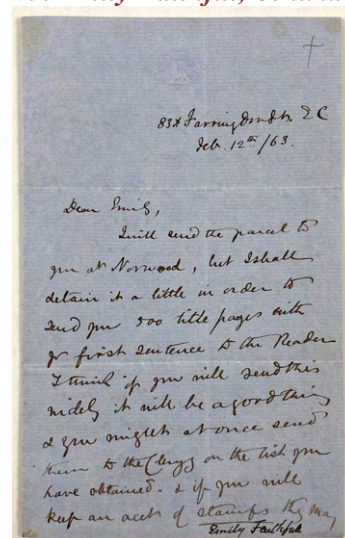 83A Farringdon St. E C
Feb. 12th /63.
Dear Emily,
I will send the parcel to
you at Norwood, but I shall
detain it a little in order to
send you 500 title pages with
yr first sentence to the Reader
I think if you will send this
widely it will be a good thing
& you might at once send
them to the Clergy on the list you
have obtained - & if you will
keep an acct of stamps they may
Emily Faithfull